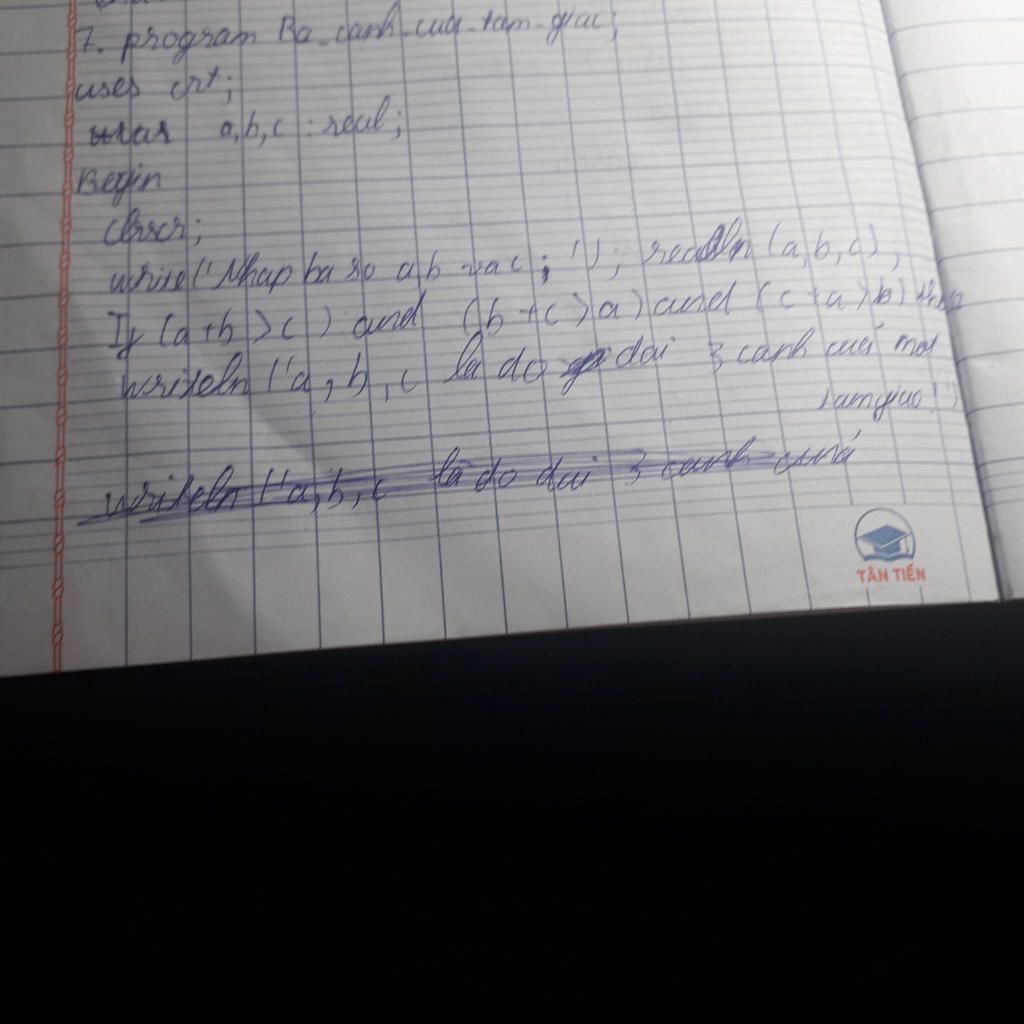 7. program Ba_canh_cua_tam_giac;
uses crt;
var a,b,c : real;
Begin
clrscr;
write('Nhap ba so a,b va c : '); readln (a,b,c);
If (a+b >c ) and (b+c >a) and (c+a >b) then
writeln ('a, b, c la do dai 3 canh cua mot
tam giac!')
writeln ('a, b, c la do dai 3 canh cua
TÂN TIẾN